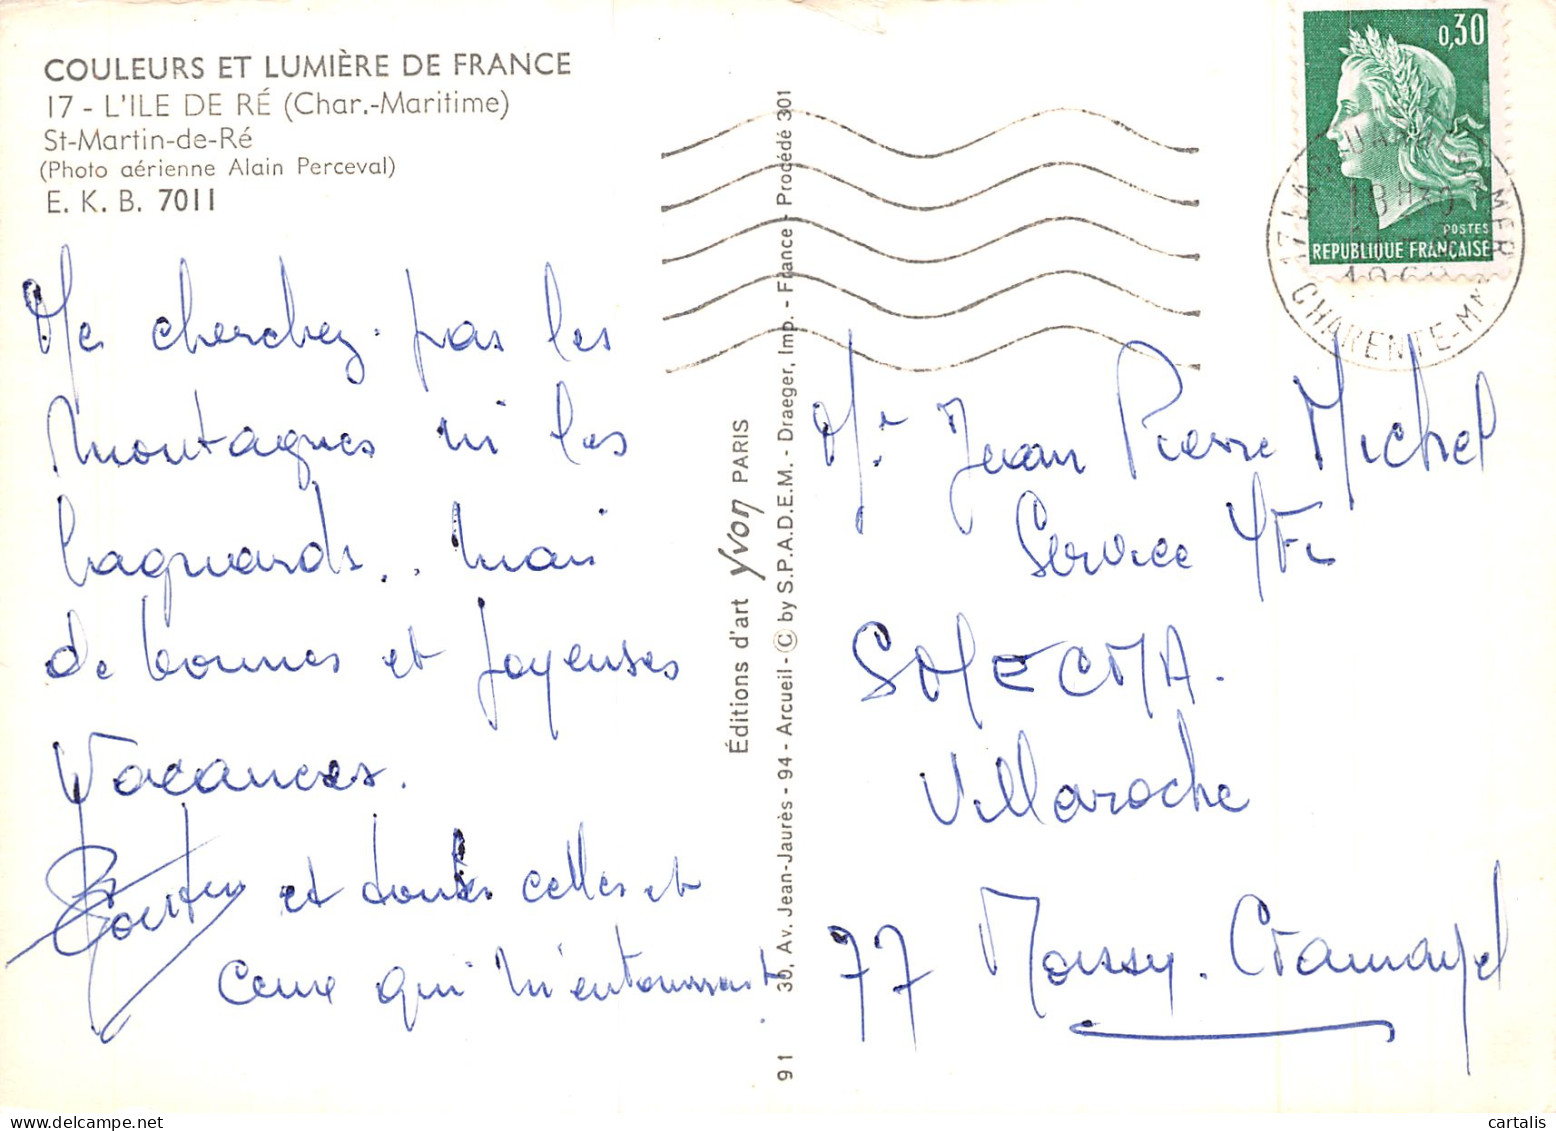 COULEURS ET LUMIÈRE DE FRANCE
17 - L'ILE DE RÉ (Char.-Maritime)
St-Martin-de-Ré
(Photo aérienne Alain Perceval)
E. K. B. 7011
Ne cherchez pas les
montagnes ni les
bagnards.. mais
de bonnes et joyeuses
Vacances.
et toutes celles et
ceux qui m'entourent
Éditions d'art Yvon PARIS
91 30, Av. Jean-Jaurès - 94 - Arcueil - © by S.P.A.D.E.M. - Draeger, Imp. - France - Procédé 301
0,30
POSTES
REPUBLIQUE FRANÇAISE
17 LA MER
18 H30
CHARENTE-MME
Mr Jean Pierre Michel
Service
SNECMA.
Villaroche
77 Moissy. Cramayel
cartalis